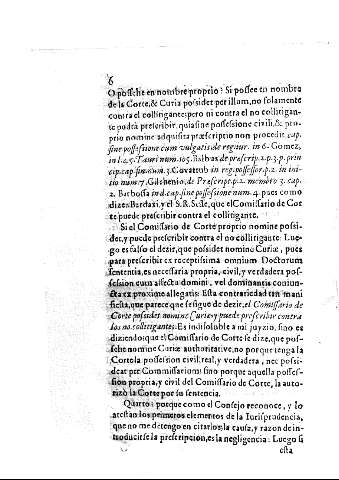 6
O possehe en nombre proprio? Si possee en nombre
de la Corte, & Curia possidet per illum, no solamente
contra el collitigante; pero ni contra el no collitigan-
te podrà prescribir, quia sine possessione civili, & pro-
prio nomine adquisita præscriptio non procedit cap.
sine possessione cum vulgatis de reg. iur. in 6. Gomez,
in l. 45. Tauri num. 105. Balbas de prescrip. 2. p. 3. p. prin
cip. cap. sin. num. 3. Covarrub in reg. possessor. p. 2. in ini-
tio num. 7. Gilchenio, de Prescript. p. 2. membro 3. cap.
2. Barbossa ind. cap. sine possessione num. 4. pues como
dize Bardaxi, y el S. R. Sesse, que el Comissario de Cor
te puede prescribir contra el collitigante.
Si el Comissario de Corte proprio nomine possi-
det, y puede prescribir contra el no collitigante: Lue-
go es falso el dezir, que possidet nomine Curiæ, pues
para prescribir ex receptissima omnium Doctorum
sententia, es necessaria propria, civil, y verdadera pos-
session cum affectu domini, vel dominantis coniun-
cta ex proxime allegatis: Esta contrariedad tan mani
fiesta, que parece que se sigue de dezir, el Comissario de
Corte possidet nomine Curiæ y puede prescribir contra
los no collitigantes: Es indisoluble a mi juyzio, sino es
diziendo que el Comissario de Corte se dize, que pos-
sehe nomine Curiæ authoritative, no porque tenga la
Corte la possession civil, real, y verdadera, nec possi-
deat per Commissarium: sino porque aquella posses-
sion propria, y civil del Comissario de Corte, la auto-
rizò la Corte por su sentencia.
Quarto: porque como el Consejo reconoce, y lo
atestan los primeros elementos de la Iurisprudencia,
que no me detengo en citarlos; la causa, y razon de in-
troducirse la prescripcion, es la negligencia: Luego si
esta